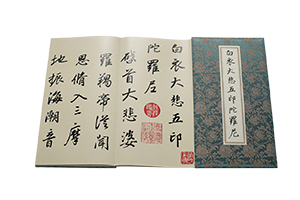 白衣大悲五印陀羅尼
白衣大悲五印
陀羅尼
稽首大悲婆
羅羯帝從聞
思脩入三摩
地振海潮音